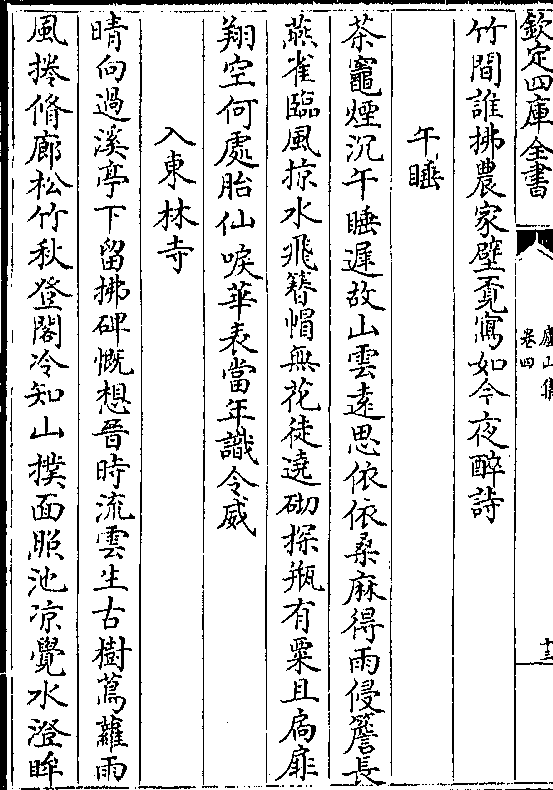 欽定四庫全書
廬山集
卷四
十三
竹間誰拂農家壁爲寫如今夜醉詩
午睡
茶竈煙沉午睡遲故山雲遠思依依桑麻得雨侵簷長
燕雀臨風掠水飛簪帽無花徒遶砌探瓶有粟且扃扉
翔空何處胎仙唳華表當年識令威
入東林寺
晴向過溪亭下留拂碑慨想晉時流雲生古樹蔦蘿雨
風捲脩廊松竹秋登閣冷知山撲面照池凉覺水澄眸